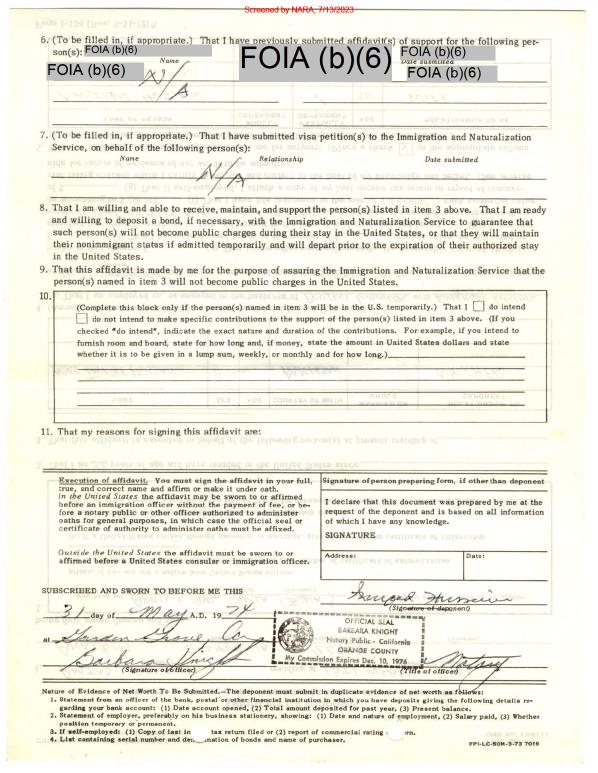 Screened by NARA, 7/13/2023
6. (To be filled in, if appropriate.) That I have previously submitted affidavit(s) of support for the following per-
son(s): FOIA (b)(6)
Name
Date submitted
FOIA (b)(6)
FOIA (b)(6)
FOIA (b)(6)
FOIA (b)(6)
N/A
7. (To be filled in, if appropriate.) That I have submitted visa petition(s) to the Immigration and Naturalization
Service, on behalf of the following person(s):
Name Relationship Date submitted
N/A
8. That I am willing and able to receive, maintain, and support the person(s) listed in item 3 above. That I am ready
and willing to deposit a bond, if necessary, with the Immigration and Naturalization Service to guarantee that
such person(s) will not become public charges during their stay in the United States, or that they will maintain
their nonimmigrant status if admitted temporarily and will depart prior to the expiration of their authorized stay
in the United States.
9. That this affidavit is made by me for the purpose of assuring the Immigration and Naturalization Service that the
person(s) named in item 3 will not become public charges in the United States.
10.
(Complete this block only if the person(s) named in item 3 will be in the U.S. temporarily.) That I do intend
do not intend to make specific contributions to the support of the person(s) listed in item 3 above. (If you
checked "do intend", indicate the exact nature and duration of the contributions. For example, if you intend to
furnish room and board, state for how long and, if money, state the amount in United States dollars and state
whether it is to be given in a lump sum, weekly, or monthly and for how long.)
11. That my reasons for signing this affidavit are:
Execution of affidavit. You must sign the affidavit in your full,
true, and correct name and affirm or make it under oath.
In the United States the affidavit may be sworn to or affirmed
before an immigration officer without the payment of fee, or be-
fore a notary public or other officer authorized to administer
oaths for general purposes, in which case the official seal or
certificate of authority to administer oaths must be affixed.
Outside the United States the affidavit must be sworn to or
affirmed before a United States consular or immigration officer.
Signature of person preparing form, if other than deponent
I declare that this document was prepared by me at the
request of the deponent and is based on all information
of which I have any knowledge.
SIGNATURE
Address: Date:
SUBSCRIBED AND SWORN TO BEFORE ME THIS
(Signature of deponent)
31 day of May A.D. 1974
at Garden Grove, Ca
OFFICIAL SEAL
BARBARA KNIGHT
Notary Public - California
ORANGE COUNTY
My Commission Expires Dec. 10, 1976
Barbara Knight
Notary
(Signature of officer)
(Title of officer)
Nature of Evidence of Net Worth To Be Submitted.—The deponent must submit in duplicate evidence of net worth as follows:
1. Statement from an officer of the bank, postal or other financial institution in which you have deposits giving the following details re-
garding your bank account: (1) Date account opened, (2) Total amount deposited for past year, (3) Present balance.
2. Statement of employer, preferably on his business stationery, showing: (1) Date and nature of employment, (2) Salary paid, (3) Whether
position temporary or permanent.
3. If self-employed: (1) Copy of last in tax return filed or (2) report of commercial rating
4. List containing serial number and of bonds and name of purchaser.
FPI-LC-50M-3-73 7019